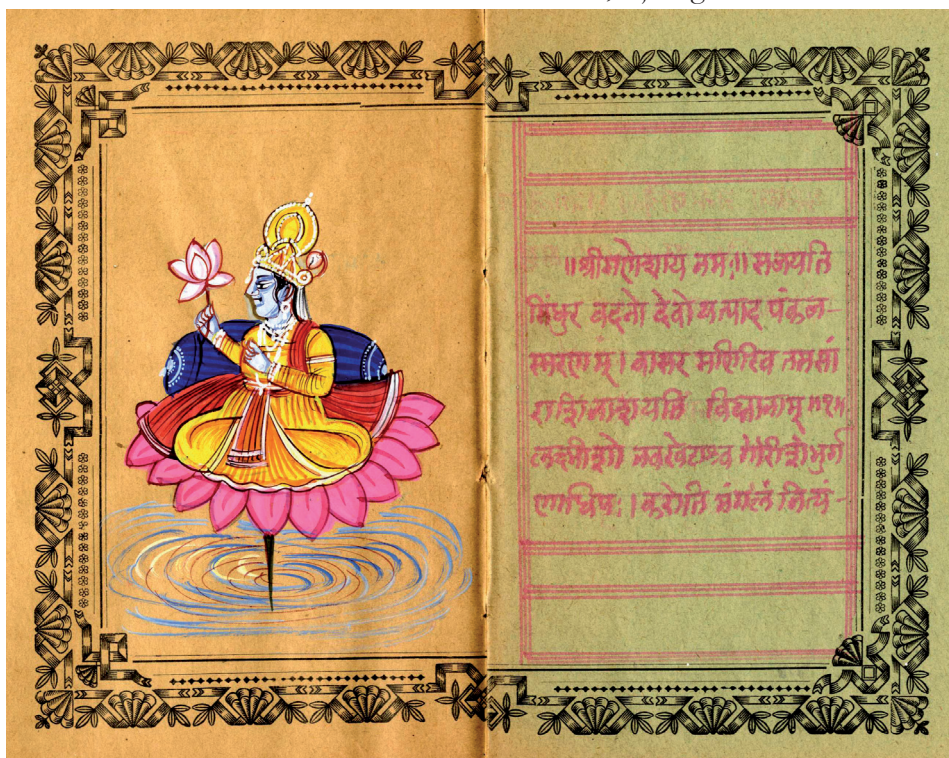 ॥श्रीगणेशाय नमः॥ सजयति
सिंधुर वदनो देवो यत्पाद पंकज-
स्मरणम्। वासर मणिरिव तमसां
राशिंनाशयति विघ्नानाम्॥१॥
लक्ष्मीशो नवखेटाश्च
णाधिपः। करोति मंगलं नित्यं-